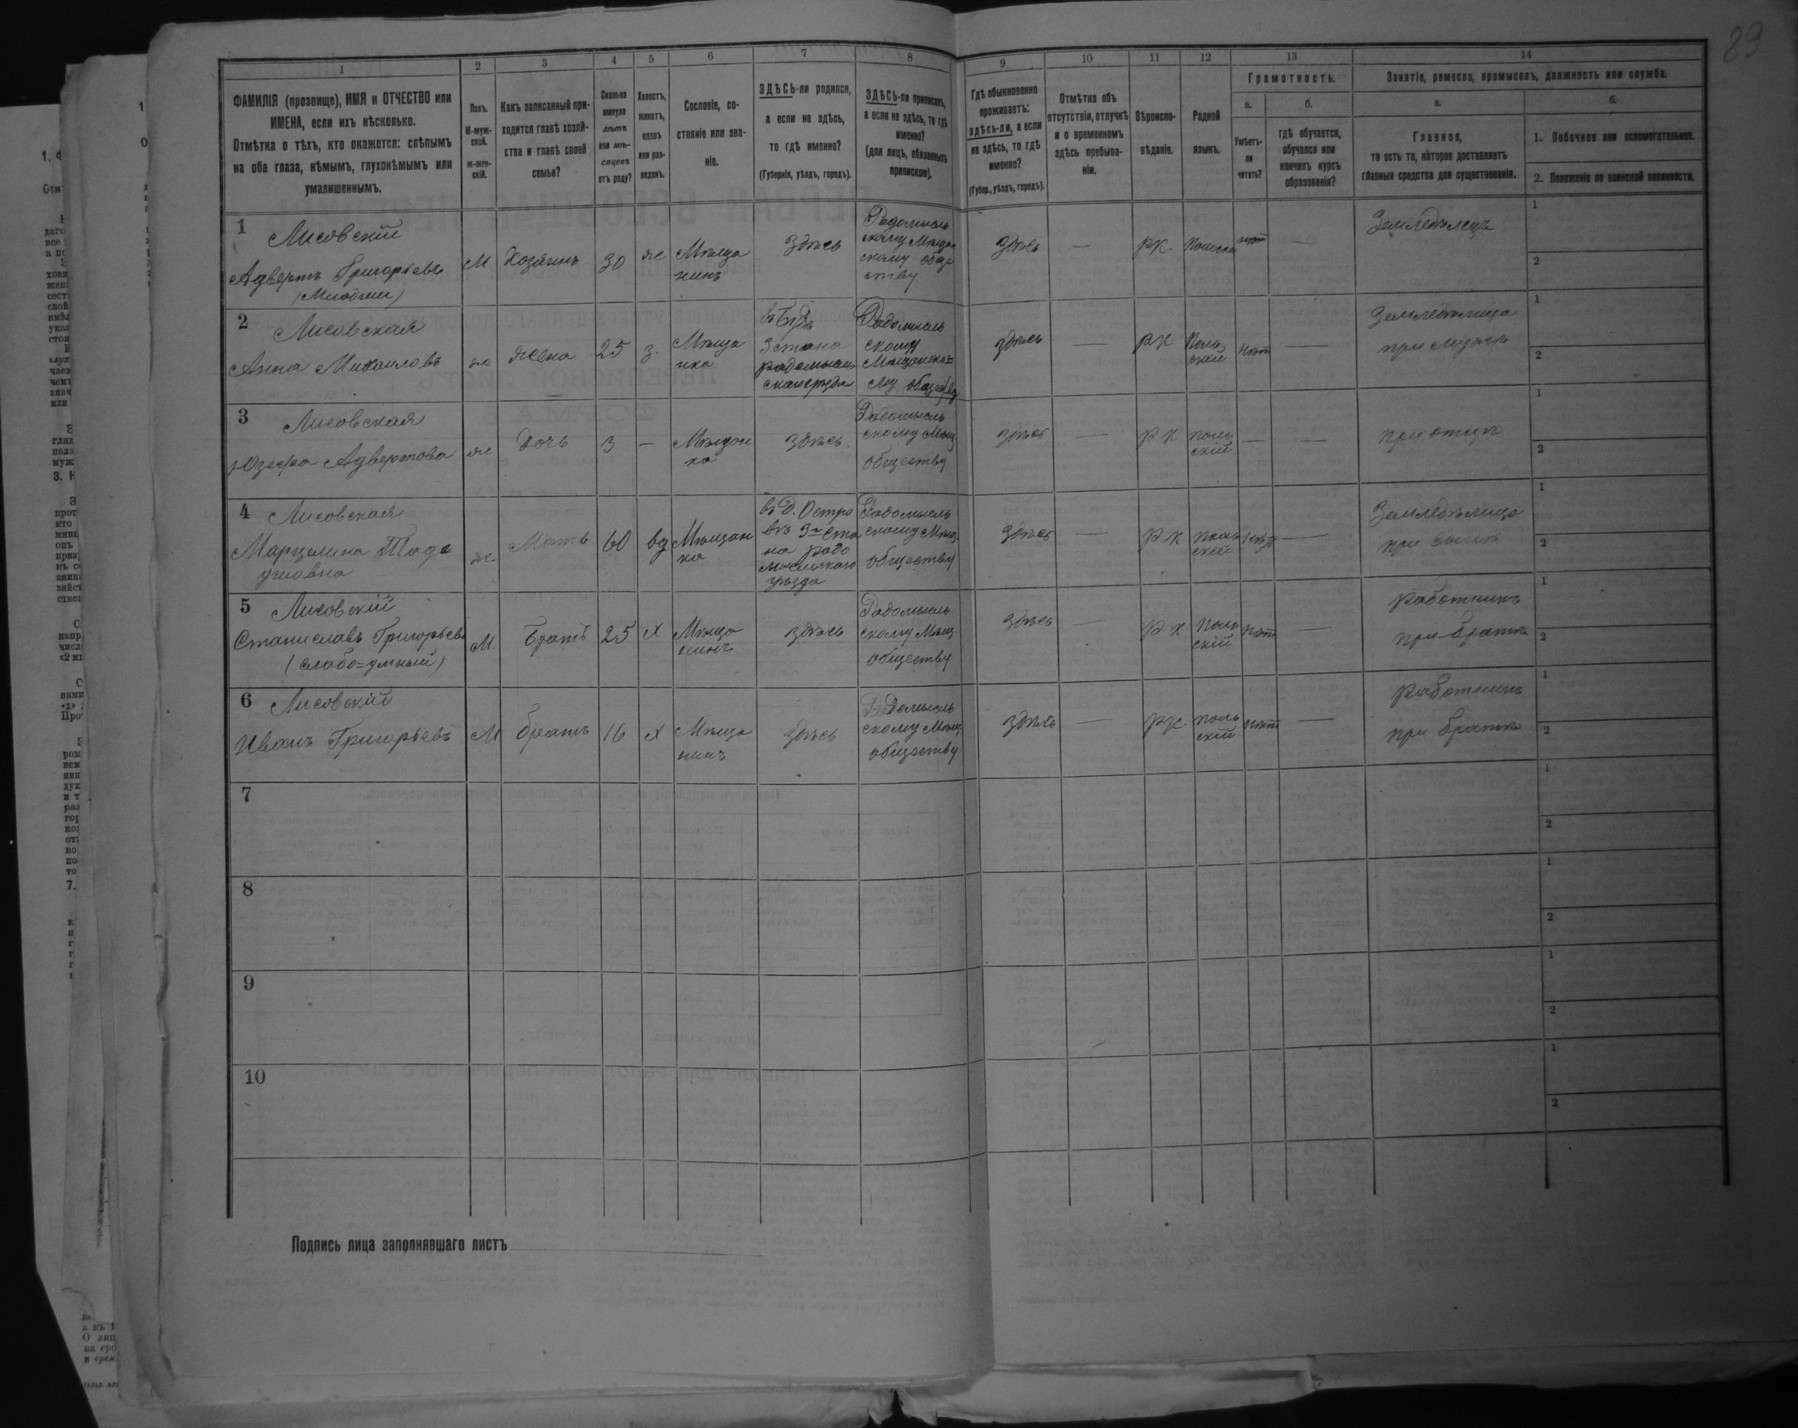 89
1
2
3
4
5
6
7
8
9
10
11
12
13
14
ФАМИЛІЯ (прозвище), ИМЯ и ОТЧЕСТВО или
ИМЕНА, если ихъ нѣсколько.
Отмѣтка о тѣхъ, кто окажется: слѣпымъ
на оба глаза, нѣмымъ, глухонѣмымъ или
умалишеннымъ.
Полъ.
М-муж-
ской.
Ж-жен-
скій.
Какъ записанный при-
ходится главѣ хозяй-
ства и главѣ своей
семьи?
Сколько
минуло
лѣтъ
или мѣ-
сяцевъ
отъ роду?
Холостъ,
женатъ,
вдовъ
или раз-
веденъ.
Сословіе, со-
стояніе или зва-
ніе.
ЗДѢСЬ-ли родился,
а если не здѣсь,
то гдѣ именно?
(Губернія, уѣздъ, городъ).
ЗДѢСЬ-ли приписанъ,
а если не здѣсь, то гдѣ
именно?
(для лицъ, обязанныхъ
припискою).
Гдѣ обыкновенно
проживаетъ:
здѣсь-ли, а если
не здѣсь, то гдѣ
именно?
(Губер., уѣздъ, городъ).
Отмѣтка объ
отсутствіи, отлучкѣ
и о временномъ
здѣсь пребыва-
ніи.
Вѣроиспо-
вѣданіе.
Родной
языкъ.
Грамотность.
а.
Умѣетъ-
ли
читать?
б.
гдѣ обучается,
обучался или
кончилъ курсъ
образованія?
Занятія, ремесло, промыселъ, должность или служба.
а.
Главное,
то есть то, которое доставляетъ
главныя средства для существованія.
б.
1. Побочное или вспомогательное.
2. Положеніе по воинской повинности.
1
Лисовскій
Адвертъ Григорьевъ
(Младшій)
М
Хозяинъ
30
ж
Мѣща
нинъ
здѣсь
Радомысль
скому Мѣщан
скому обще
ству
здѣсь
—
рк.
Польск
нѣт
—
Земледѣлецъ
1
2
2
Лисовская
Анна Михаиловъ
ж
жена
25
з.
Мѣща
нка
3 стана
радомысль
Радомысль
скому
Мѣщанско
му
здѣсь
—
рк
Поль
скій
нѣт
—
Земледѣлица
при мужѣ
1
2
3
Лисовская
Юзефа Адвертова
ж
Дочь
3
—
Мѣщан
ка
здѣсь.
Радомысль
скому Мѣщ
обществу
здѣсь
—
рк
поль
скій
—
—
при отцѣ
1
2
4
Лисовская
Марцелина Таде
ушовна
ж.
Мать
60
вд
Мѣщан
ка
въ д. Остро
въ 3го ста
на радо
мысльского
уѣзда
Радомысль
скому Мѣщ.
обществу
здѣсь
—
рк
поль
скій
нѣт
—
Земледѣлица
при сынѣ
1
2
5
Лисовскій
Станиславъ Григорьевъ
(слабо=умный)
М
Братъ
25
х
Мѣща
нинъ
здѣсь
Радомысль
скому Мѣщ.
обществу
здѣсь
—
рк
поль
скій
нѣт
—
работникъ
при братѣ
1
2
6
Лисовскій
Иванъ Григорьевъ
М
братъ
16
х
Мѣща
нинъ
здѣсь
Радомысль
скому Мѣщ.
обществу
здѣсь
—
рк.
поль
скій
нѣт
—
работникъ
при братѣ
1
2
7
1
2
8
1
2
9
1
2
10
1
2
Подпись лица заполнявшаго листъ